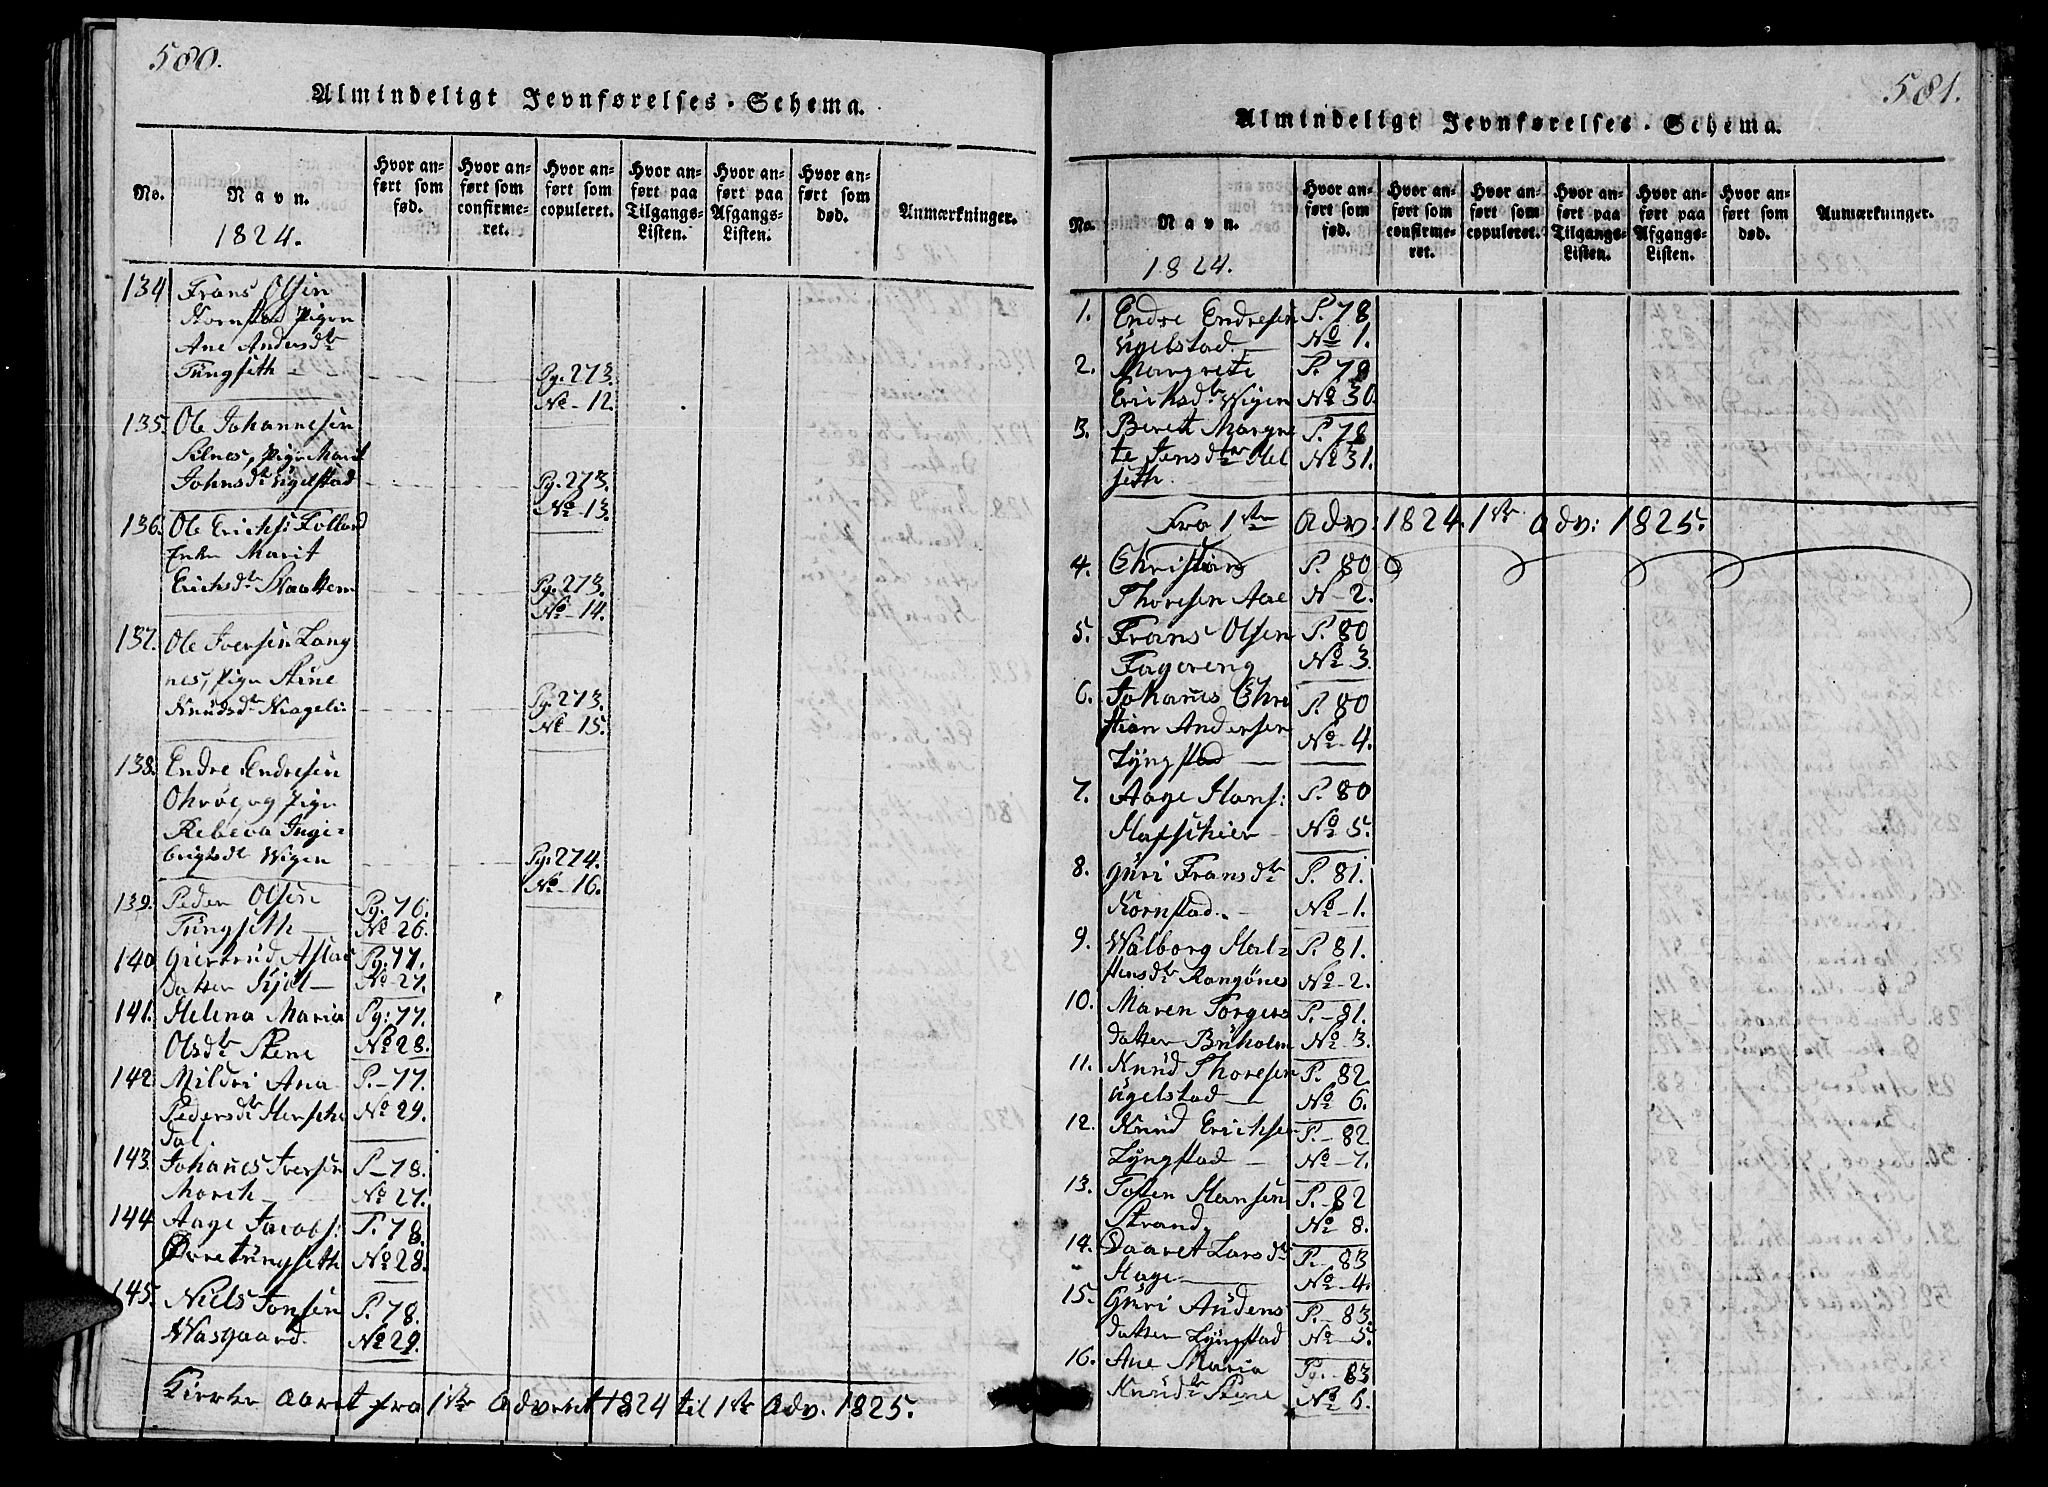 580.
Almindeligt Jevnførelses-Schema.
No.
Navn.
1824.
Hvor anført som fød.
Hvor anført som confirmeret.
Hvor anført som copuleret.
Hvor anført paa Tilgangs-Listen.
Hvor anført paa Afgangs-Listen.
Hvor anført som død.
Anmærkninger.
134 Frans Olsen
Kornstad Pigen
Ane Andersdtr
Tüngseth - Pg. 273.
No - 12.
135. Ole Johannesen
Silnes, Pige Marit
Johnsdtr Ugelstad Pg. 273.
No - 13.
136. Ole Erichs: Folland
Enke Marit
Erichsdtr Pg. 273.
No - 14.
137. Ole Iversen Lang
nes, Pige Stine
Knudsdtr Pg. 273.
No - 15.
138. Endre Endresen
Pige
Rebeca Inge-
brigtsdtr Wigen Pg. 274.
No - 16.
139. Peder Olsen Pg. 76.
Tüngseth No - 26.
140 Giertrud Aslac Pg. 77.
datter Kjöl - No - 27.
141. Helena Maria Pg: 77.
Olsdtr Stene No 28.
142 Mildri Ana P. - 77.
Pedersdtr Hensche No 29.
dal
143. Johanes Iversen P - 78.
Morch - No 27.
144 Aage Jacobs: P. 78.
Øvretüngseth No 28.
145. Niels Jonsen P. 78.
Wasgaard. No 29.
Kirke aaret fra 1ste Advent 1824 til 1ste Adv. 1825.
581.
Almindeligt Jevnførelses-Schema.
No.
Navn.
1824.
Hvor anført som fød.
Hvor anført som confirmeret.
Hvor anført som copuleret.
Hvor anført paa Tilgangs-Listen.
Hvor anført paa Afgangs-Listen.
Hvor anført som død.
Anmærkninger.
1. Endre Endresen P. 78
Ugelstad. - No 1.
2. Margrete P. 78
Erichsdtr Wigen No 30.
3. Berett Margre P. 78
te Jensdtr Hel No 31.
seth
Fra 1ste Adv: 1824. 1ste Adv: 1825.
4. Christian P. 80
Thoresen Aae N - 2.
5. Frans Olsen P. 80
Fagereng No - 3.
6. Johanes Chri P. 80
stian Andersen No - 4.
Lyngstad -
7. Aage Hans: P. 80
No - 5.
8. Guri Fransdtr P. 81.
Kornstad. - No - 1.
9. Walborg Hal- P. 81.
stensdtr Rangönes No - 2.
10. Maren Torgers P. - 81.
datter Büholm No - 3.
11. Knud Thoresen P. 82.
Ugelstad - No 6.
12. Knud Erichsen P. - 82
Lyngstad - No - 7.
13. Tosten Hansen P. - 82
Strand. No 8.
14. Daaret Larsdtr P. - 83
Hage - No - 4.
15. Guri Audens P. - 83.
datter Lyngstad No - 5.
16. Ane Maria Pg. - 83
Knudtr Stene No 6.